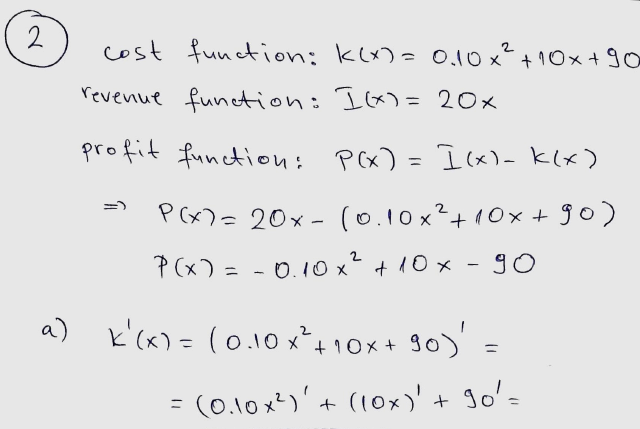 2
cost function: K(x) = 0.10x² + 10x + 90
revenue function: I(x) = 20x
profit function: P(x) = I(x) - K(x)
=> P(x) = 20x - (0.10x² + 10x + 90)
P(x) = -0.10x² + 10x - 90
a) K'(x) = (0.10x² + 10x + 90)' =
= (0.10x²)' + (10x)' + 90' =